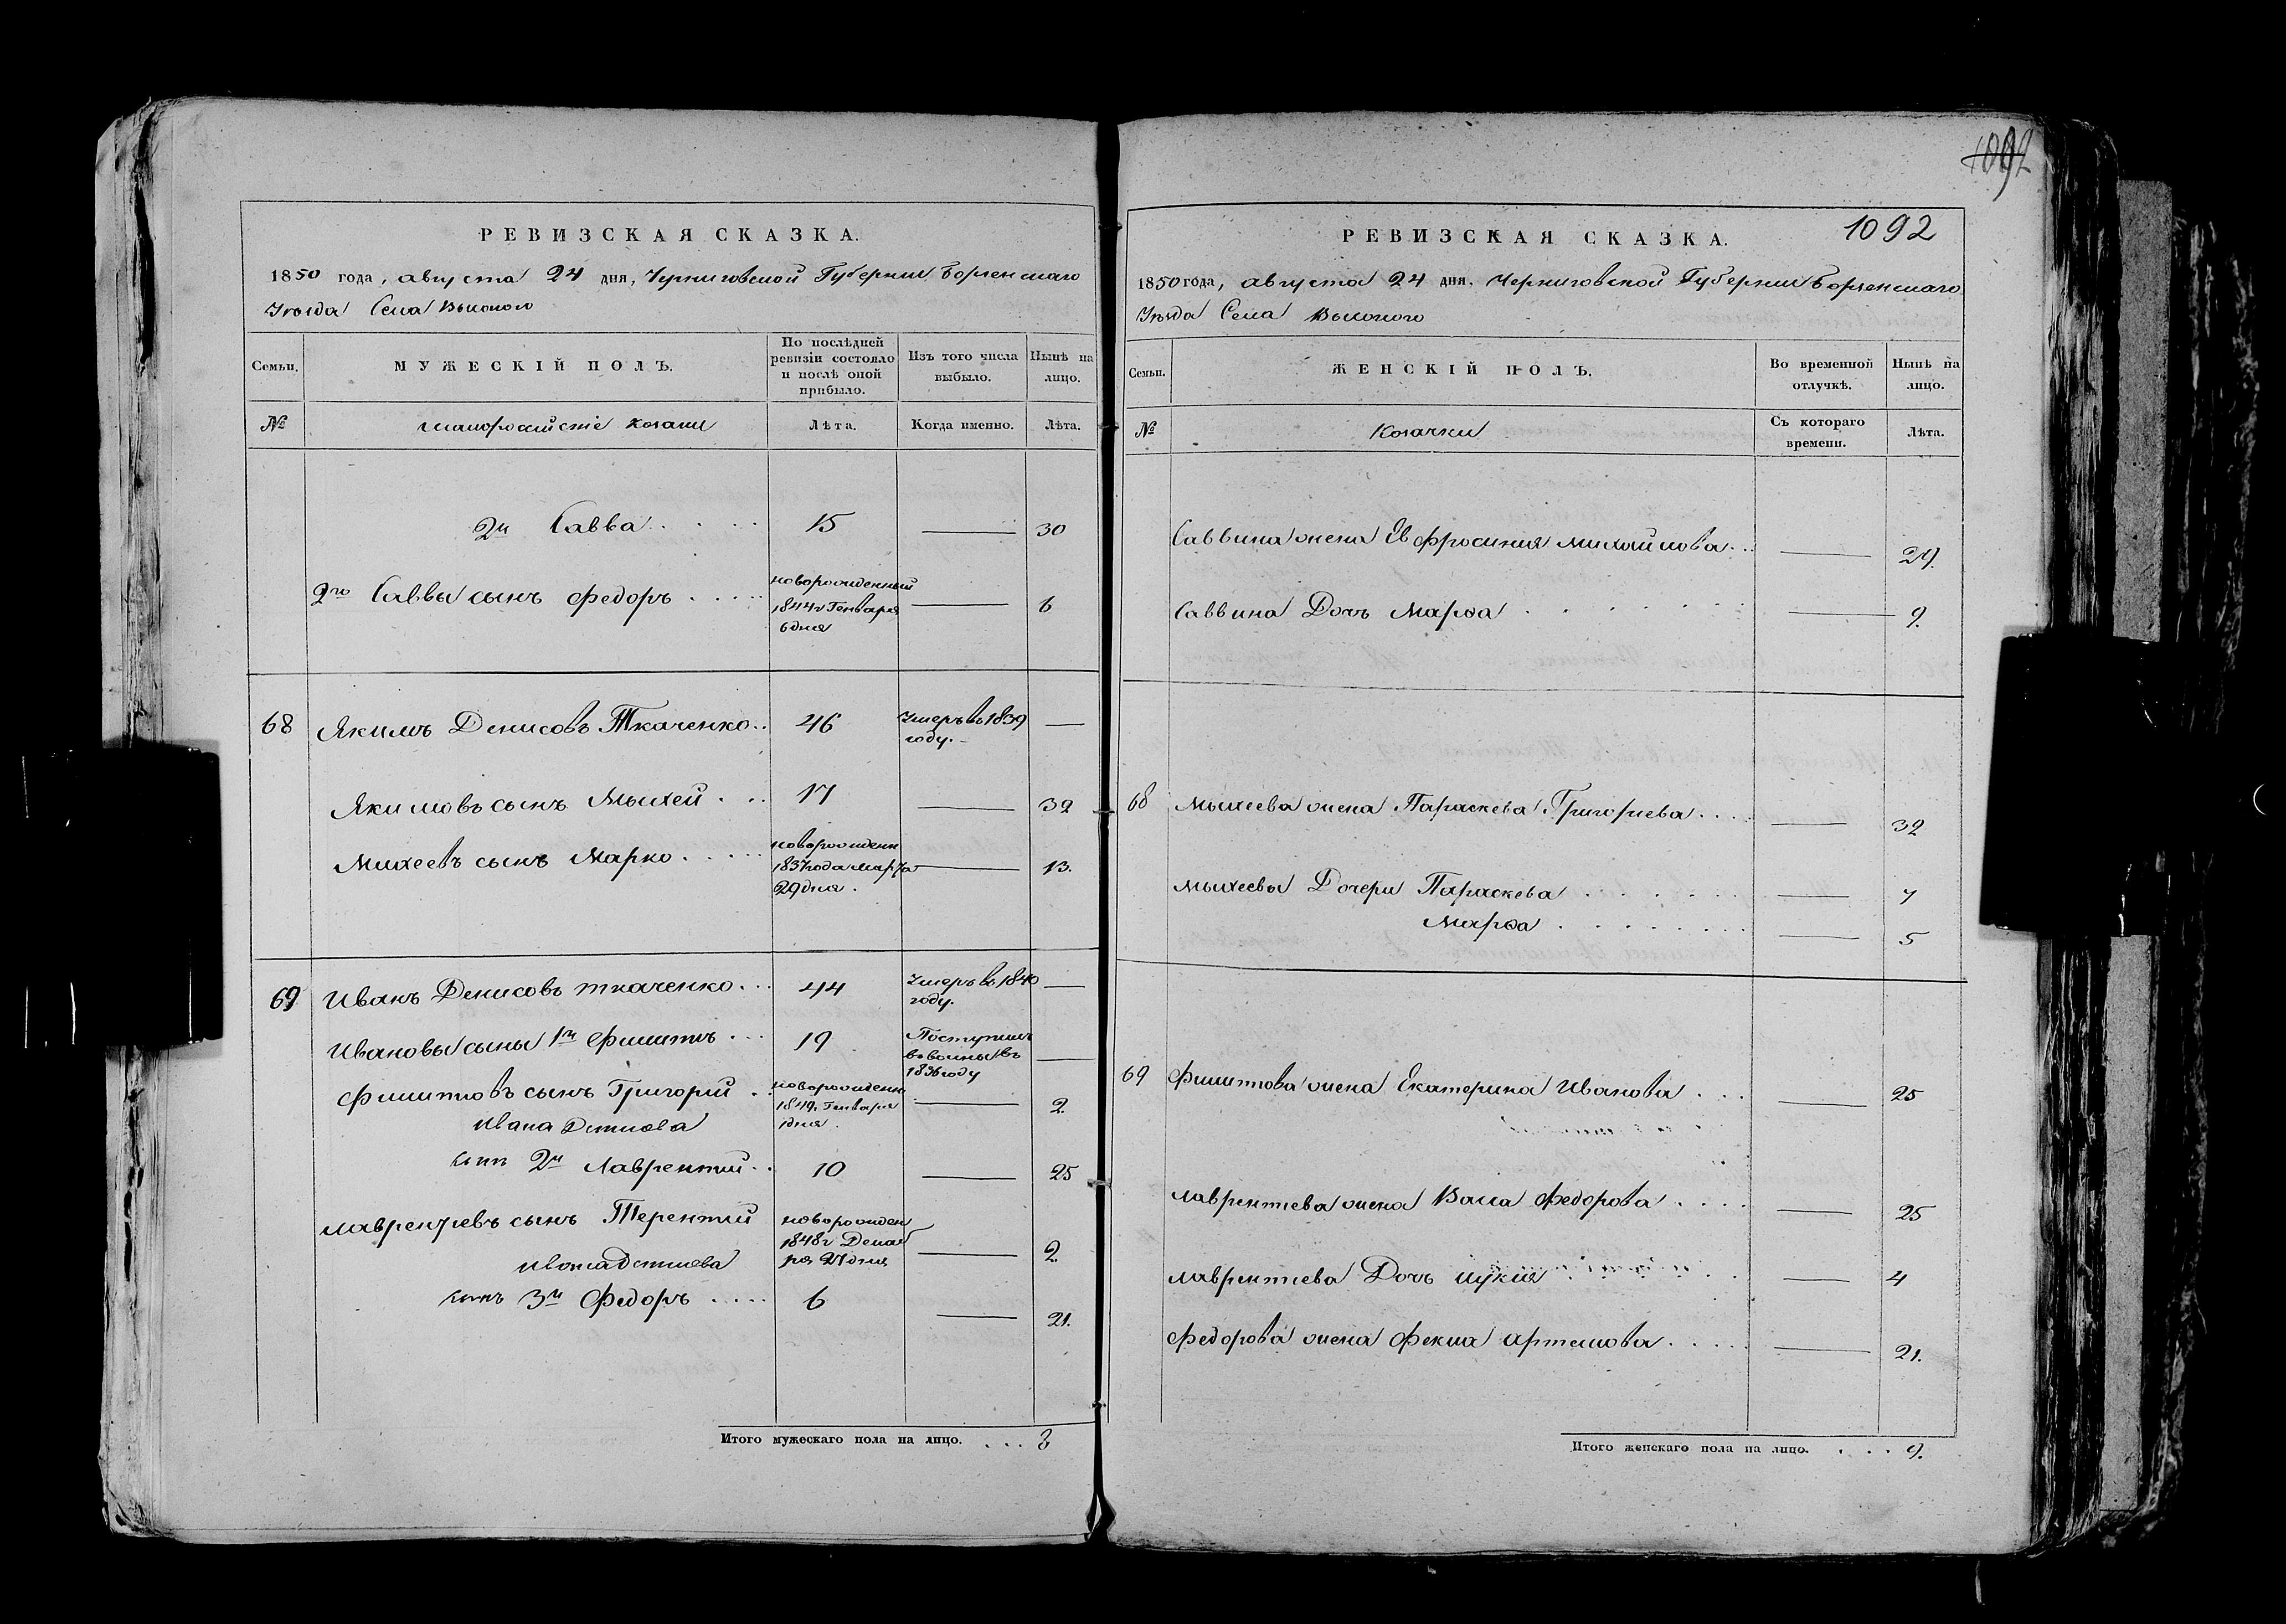 РЕВИЗСКАЯ СКАЗКА.
1850 года, августа 24 дня, Черниговской Губернии Борзенскаго
Уѣзда Села Высокого
Семьи.
МУЖЕСКІЙ ПОЛЪ.
По послѣдней ревизіи состояло и послѣ оной прибыло.
Изъ того числа выбыло.
Нынѣ на лицо.
№
малороссійскіе козаки
Лѣта.
Когда именно.
Лѣта.
2й Савва . . . . 15 — 30
2го Саввы сынъ Федоръ . . . . новорожденный 1844г Генваря 6 дня — 6
68 Якимъ Денисовъ Ткаченко . . 46 Умеръ въ 1839 году. —
Якимовъ сынъ Михей . . . 17 — 32
Михеевъ сынъ Марко . . . . новорожденн 1837 года марта 29 дня . — 13.
69 Иванъ Денисовъ ткаченко . . . 44 Умеръ въ 1840 году. —
Ивановы сыны 1й Филиппъ . . . 19 Поступилъ въ 1836 году —
Филипповъ сынъ Григорій . . новорожденн 1849г Генваря 1 дня . — 2.
Ивана Денисова
сынъ 2й Лаврентий . . 10 — 25
Лаврентиевъ сынъ Терентий новорожден 1848г Декабря 27 дня — 2.
Ивана Денисова
сынъ 3й Федоръ . . . . 6 — 21.
Итого мужескаго пола на лицо. . . . 8
1092
1092
РЕВИЗСКАЯ СКАЗКА.
1850 года, августа 24 дня. Черниговской Губернии Борзенскаго
Уѣзда Села Высокого
Семьи.
ЖЕНСКІЙ ПОЛЪ.
Во временной отлучкѣ.
Нынѣ на лицо.
№
Козачки
Съ котораго времени.
Лѣта.
Саввина жена Евфросиния Михайлова . . — 29.
Саввина Дочь Марѳа . . . . . . — 9.
68 Михеева жена Параскева Григориева . . . . — 32
Михеевы Дочери Параскева . . . . . — 7
Марѳа . . . . . . . — 5
69 Филиппова жена Екатерина Иванова . . . — 25
Лаврентиева жена Васса Федорова . . . . — 25
Лаврентиева Дочь Лукия . . — 4
Федорова жена Фекла Артемова . . . . . — 21.
Итого женскаго пола на лицо. . . . 9.